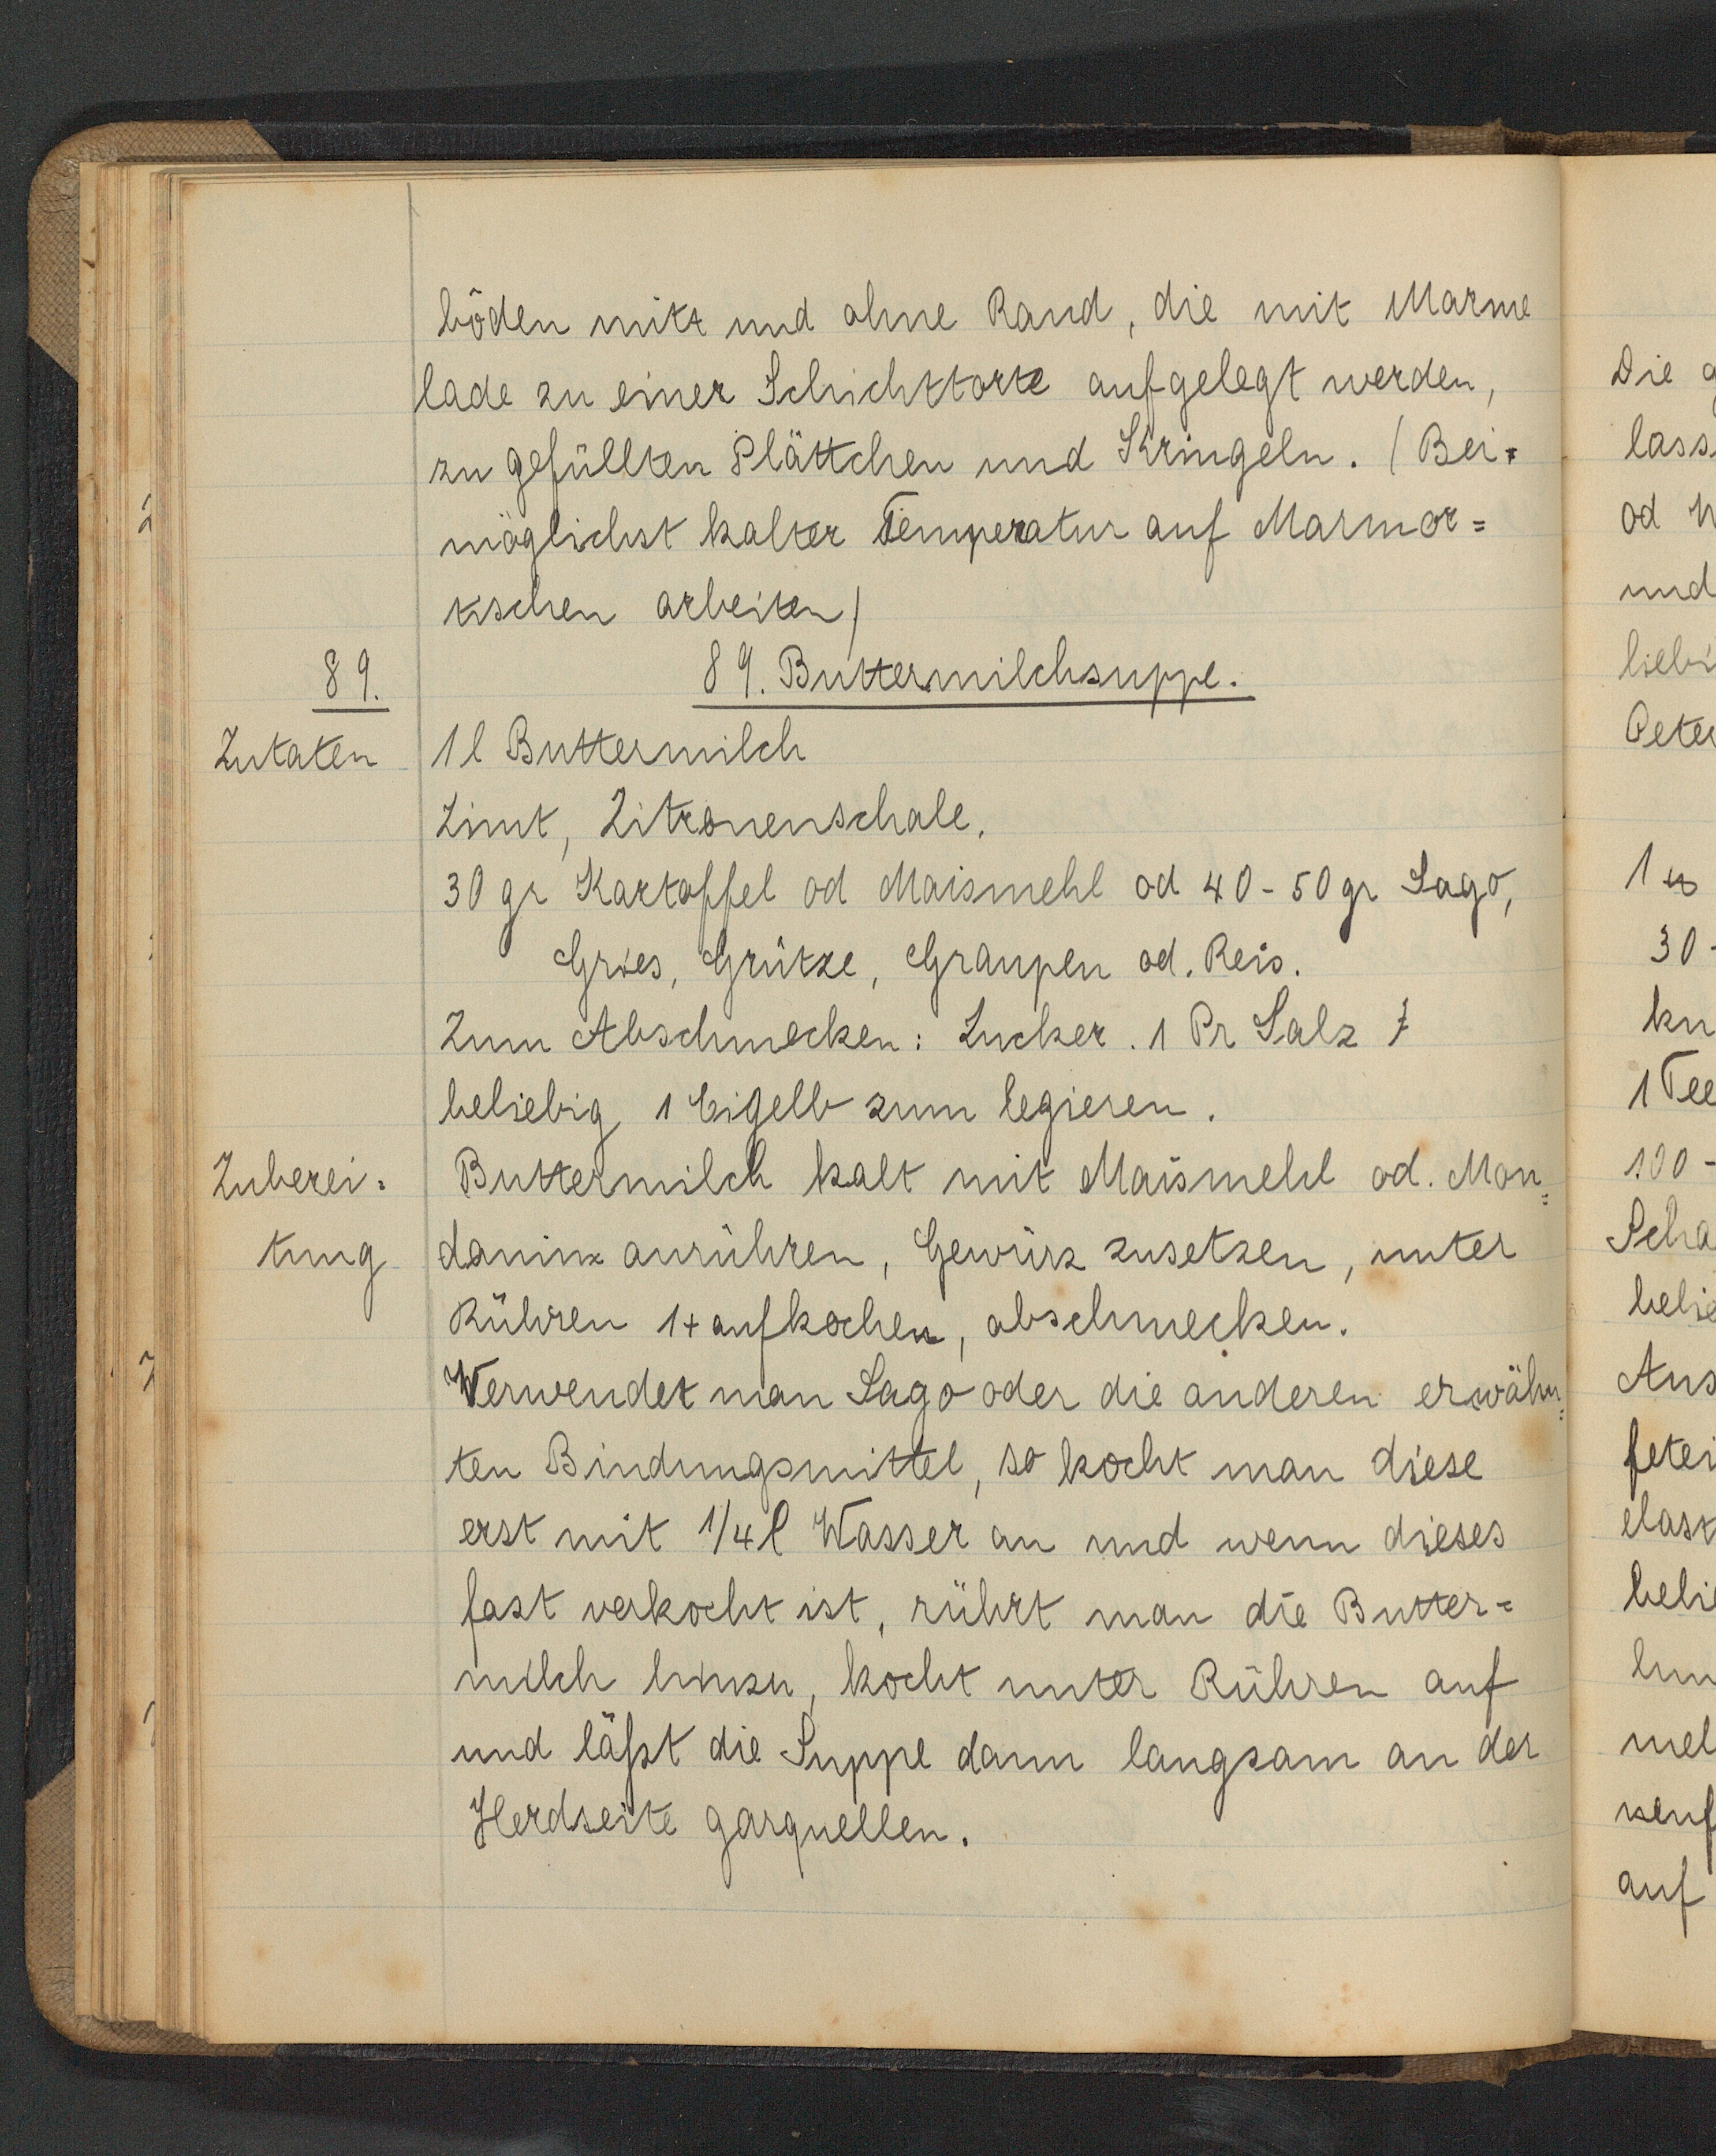 böden mitt und ohne Rand, die mit Marme
lade zu einer Schichttorte aufgelegt werden,
zu gefüllten Plättchen und Kringeln. (Bei=
möglichst kalter Temperatur auf Marmor=
tischen arbeiten)
89.
89. Buttermilchsuppe.
Zutaten
1 l Buttermilch
Zimt, Zitronenschale.
30 gr Kartoffel od Maismehl od 40-50 gr Sago,
Gries, Grütze, Graupen od. Reis.
Zum Abschmecken: Zucker. 1 Pr Salz
beliebig 1 Eigelb zum legieren.
Zuberei=
tung
Buttermilch kalt mit Maismehl od. Mon=
danin anrühren, Gewürz zusetzen, unter
Rühren 1+ aufkochen, abschmecken.
Verwendet man Sago oder die anderen erwähn=
ten Bindungsmittel, so kocht man diese
erst mit 1/4 l Wasser an und wenn dieses
fast verkocht ist, rührt man die Butter=
milch hinzu, kocht unter Rühren auf
und läßt die Suppe dann langsam an der
Herdseite garquellen.
Die g
lass
od W
und
liebi
Peter
1
30-
kn
1 Tee
100-
Scha
belie
Aus
fetei
elast
belie
hin
mel
senf
auf